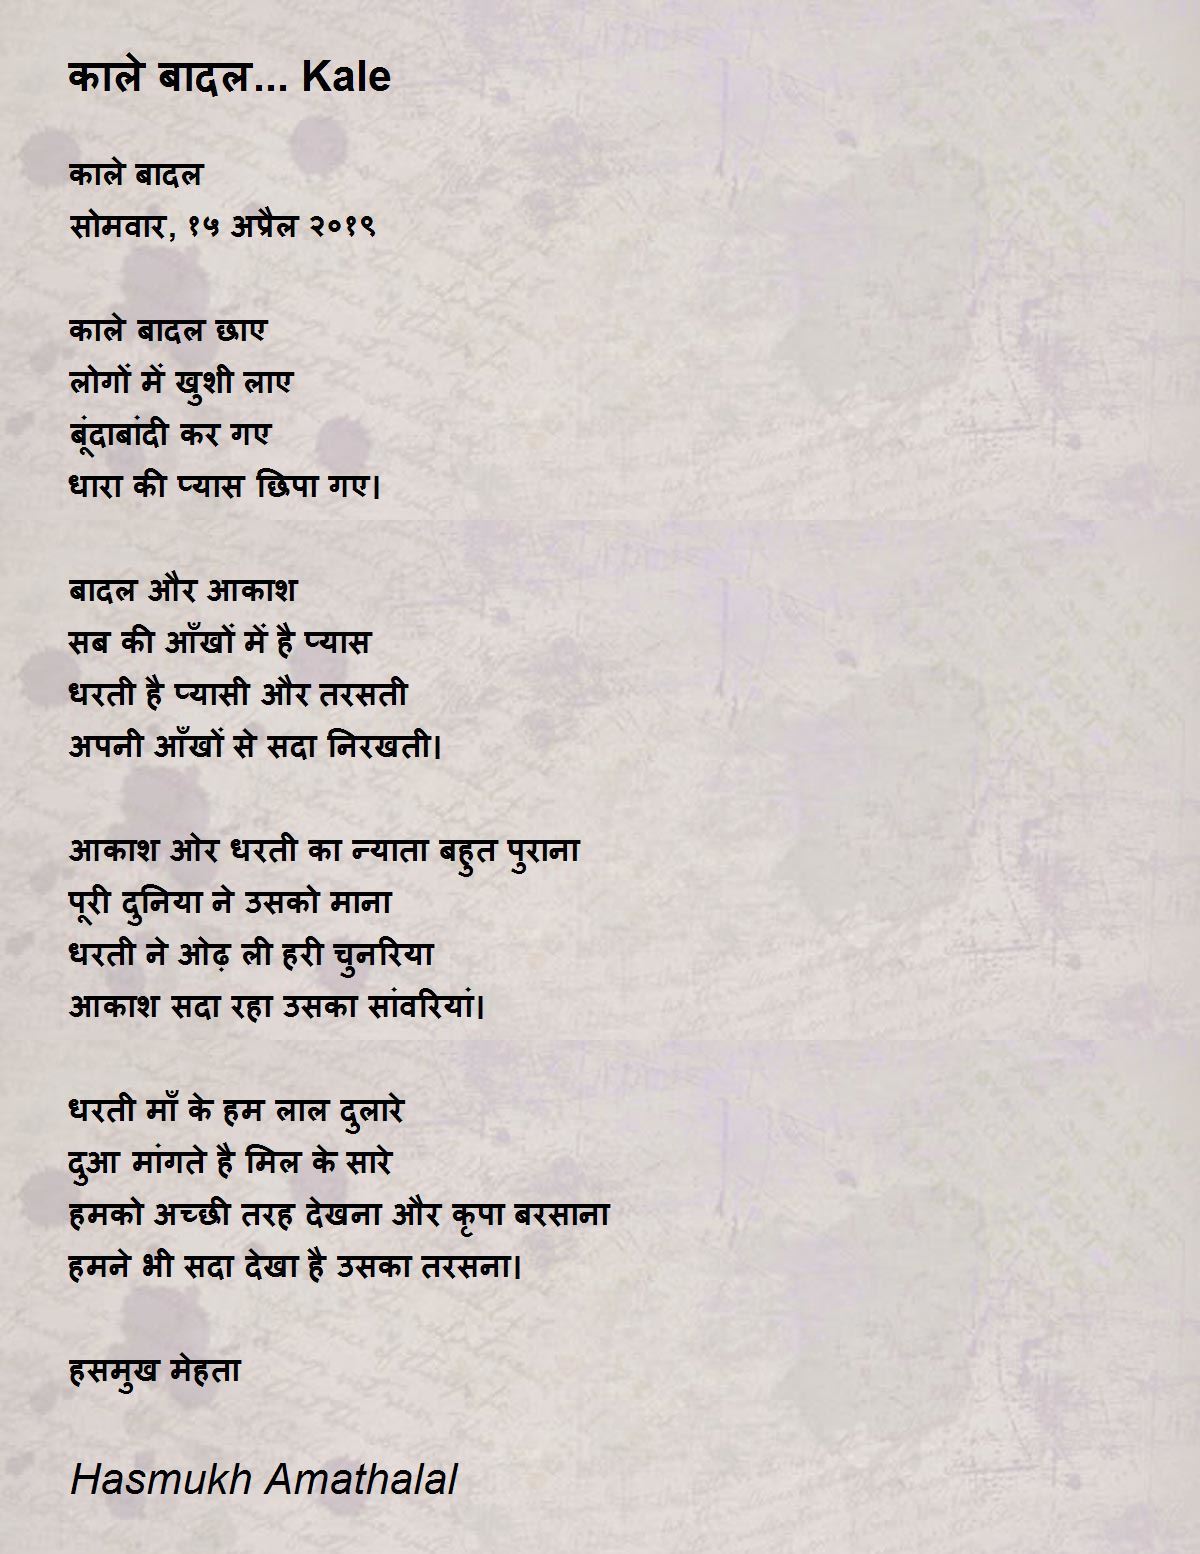 काले बादल... Kale
काले बादल
सोमवार, १५ अप्रैल २०१९
काले बादल छाए
लोगों में खुशी लाए
बूंदाबांदी कर गए
धारा की प्यास छिपा गए।
बादल और आकाश
सब की आँखों में है प्यास
धरती है प्यासी और तरसती
अपनी आँखों से सदा निरखती।
आकाश ओर धरती का न्याता बहुत पुराना
पूरी दुनिया ने उसको माना
धरती ने ओढ़ ली हरी चुनरिया
आकाश सदा रहा उसका सांवरियां।
धरती माँ के हम लाल दुलारे
दुआ मांगते है मिल के सारे
हमको अच्छी तरह देखना और कृपा बरसाना
हमने भी सदा देखा है उसका तरसना।
हसमुख मेहता
Hasmukh Amathalal